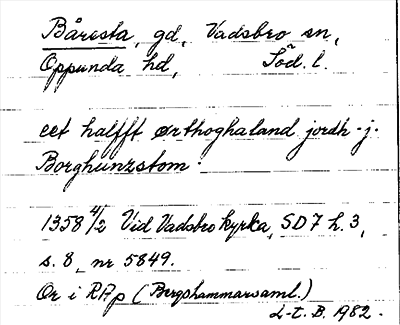 Båresta, gd, Vadsbro sn,
Oppunda hd, Söd. l.
eet halfft ørthoghaland jordh j
Borghunzstom
1358 4/2 Vid Vadsbro kyrka, SD 7 h. 3,
s. 8 nr 5849.
Or i RAp (Bergshammarsaml.)
L-t. B. 1982.